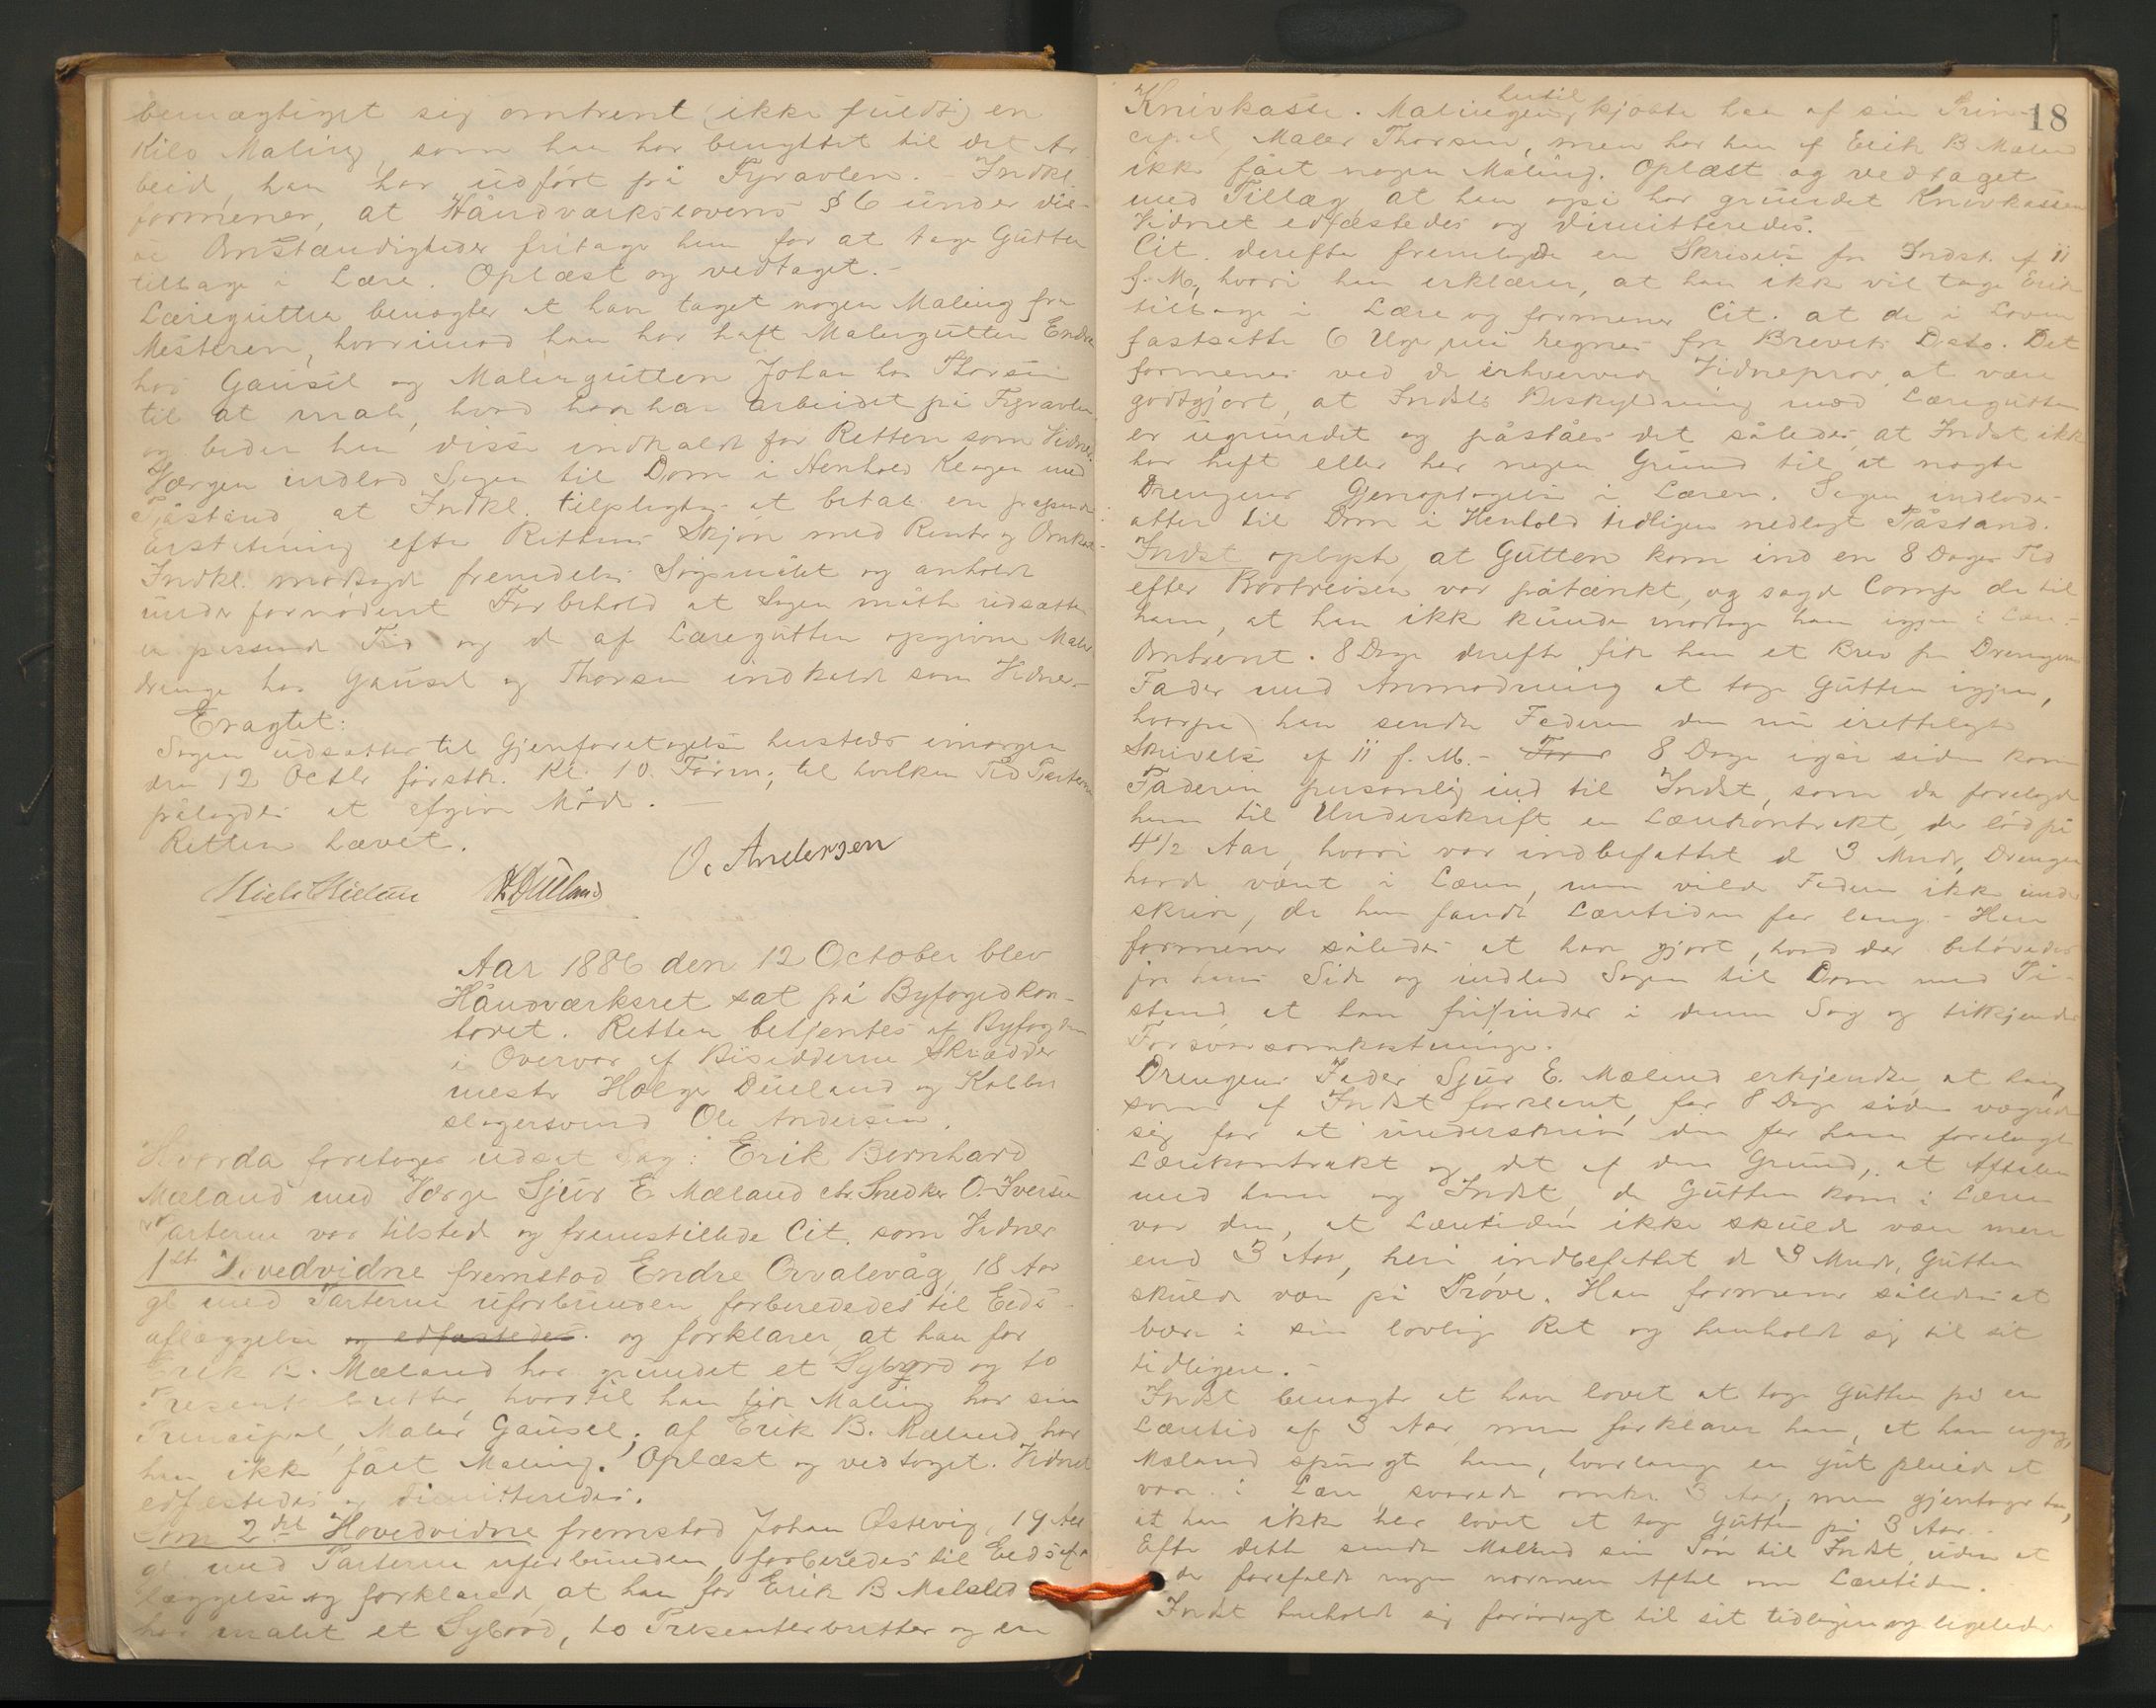 bemægtiget sig omtrent (ikke fuldt) en
Kilo Maling, som han har benyttet til det Ar
beid, han har udført på Fyravlen. - Indkl.
formener, at Håndværkslovens § 6 under dis-
se Omstændigheder fritager ham for at tage Gutten
tilbage i Lære. Oplæst og vedtaget. -
Læregutten benægter at have taget nogen Maling fra
Mesteren, hvorimod han har haft Malergutten Endre
hos Gausel og Malergutten Johan hos Thorsen
til at male, hvad han har arbeidet på Fyravlen,
og beder han disse indkaldt for Retten som Vidner.
Værgen indlod Sagen til Dom i Henhold Klagen med
Påstand at Indkl. tilpligtes at betale en passende
Erstatning efter Rettens Skjøn med Renter og Omkost-
Indkl. modsagde fremdeles Søgsmålet og anholdt
under fornødent Forbehold at Sagen måtte udsættes
en passende Tid og de af Læregutten opgivne Maler
drenge hos Gausel og Thorsen indkaldt som Vidner. -
Eragtet:
Sagen udsættes til Gjenforetagelse hersteds imorgen
den 12 Octbr førstk. Kl. 10 Form; til hvilken Tid Parterne
pålagdes at afgive Møde. -
Retten hævet.
O. Andersen
Aar 1886 den 12 October blev
Håndværksret sat på Byfogedkon-
toret. Retten betjentes af Byfogden
i Overvær af Bisidderne Skrædder
mester Holger Dueland og Kobber
slagersvend Ole Andersen.
Hvorda foretoges udsat Sag: Erik Bernhard
Mæland med Værge Sjur E. Mæland ctr. Snedker O. Iversen
Parterne var tilstede og fremstillede Cit. som Vidner
1st Hovedvidne fremstod Endre Orvalevåg, 18 Aar
gl. med Parterne uforbunden, forberededes til Eeds-
aflæggelse og edfæstedes og forklarer, at han for
Erik B. Mæland har grundet et Sybord og to
Presenterbretter, hvortil han fik Maling hos sin
Principal, Maler Gausel; af Erik B. Mæland har
han ikke fået Maling. Oplæst og vedtaget. Vidnet
edfæstedes og dimitteredes.
Som 2det Hovedvidne fremstod Johan Østevig, 19 Aar
gl. med Parterne uforbunden, forberedes til Eedsaf-
læggelse og forklarede, at han for Erik B Mæland
har malet et Sybord, to Presenterbretter og en
18
Knivkasse. Malingen hertil kjøbte han af sin Prin-
cipal, Maler Thorsen, men har han af Erik B Mæland
ikke fået nogen Maling. Oplæst og vedtaget
med Tillæg, at han også har grundet Knivkassen
Vidnet edfæstedes og dimitteredes.
Cit. derefter fremlagde en Skrivelse fra Indst. af 11
f. M., hvori han erklærer, at han ikke vil tage Erik
tilbage i Lære og formener Cit. at de i Loven
fastsatte 6 Uger må regnes fra Brevets Dato. Det
formenes ved de erhvervede Vidneprov at være
godtgjort, at Indsts Beskyldning mod Læregutten
er ugrundet og påståes det således, at Indst ikke
har haft eller har nogen Grund til at nægte
Drengens Gjenoptagelse i Læren. Sagen indlodes
atter til Dom i Henhold tidligere nedlagt Påstand.
Indst oplyste, at Gutten kom ind en 8 Dages Tid
efter Bortreisen var påtænkt, og sagde Comp. da til
ham, at han ikke kunde modtage ham igjen i Lære.
Omtrent 8 Dage derefter fik han et Brev fra Drengens
Fader med Anmodning at tage Gutten igjen,
hvorpå han sendte Faderen den nu irettelagte
Skrivelse af 11 f. M. - For 8 Dage igjen siden kom
Faderen personlig ind til Indst, som da forelagde
ham til Underskrift en Lærekontrakt, der lød på
4½ Aar, hvori var indbefattet de 3 Mndr, Drengen
havde været i Lære, men vilde Faderen ikke under
skrive, da han fandt Læretiden for lang. - Han
formener således at have gjort, hvad der behøvedes
fra hans Side og indlod Sagen til Dom med På-
stand, at han frifindes i denne Sag og tilkjendes
Forsvarsomkostninger.
Drengens Fader Sjur E. Mæland erkjendte, at han,
som af Indst forklaret, for 8 Dage siden vægrede
sig for at underskrive den for ham forelagte
Lærekontrakt og det af den Grund, at Aftalen
med ham og Indst, da Gutten kom i Lære
var den, at Læretiden ikke skulde være mere
end 3 Aar, heri indbefattet de 3 Mndr, Gutten
skulde være på Prøve. Han formener således at
være i sin lovlige Ret og henholdt sig til sit
tidligere. -
Indst benægter at have lovet at tage Gutten på en
Læretid af 3 Aar, men forklarer han, at han engang,
Mæland spurgte ham, hvorlænge en Gut pleiede at
være i Lære, svarede omkr. 3 Aar; men gjentager han,
at han ikke har lovet at tage Gutten på 3 Aar. -
Efter dette sendte Mæland sin Søn til Indst, uden at
der forefaldt nogen nærmere Aftale om Læretiden.
Indst henholdt sig forøvrigt til sit tidligere og ligeledes